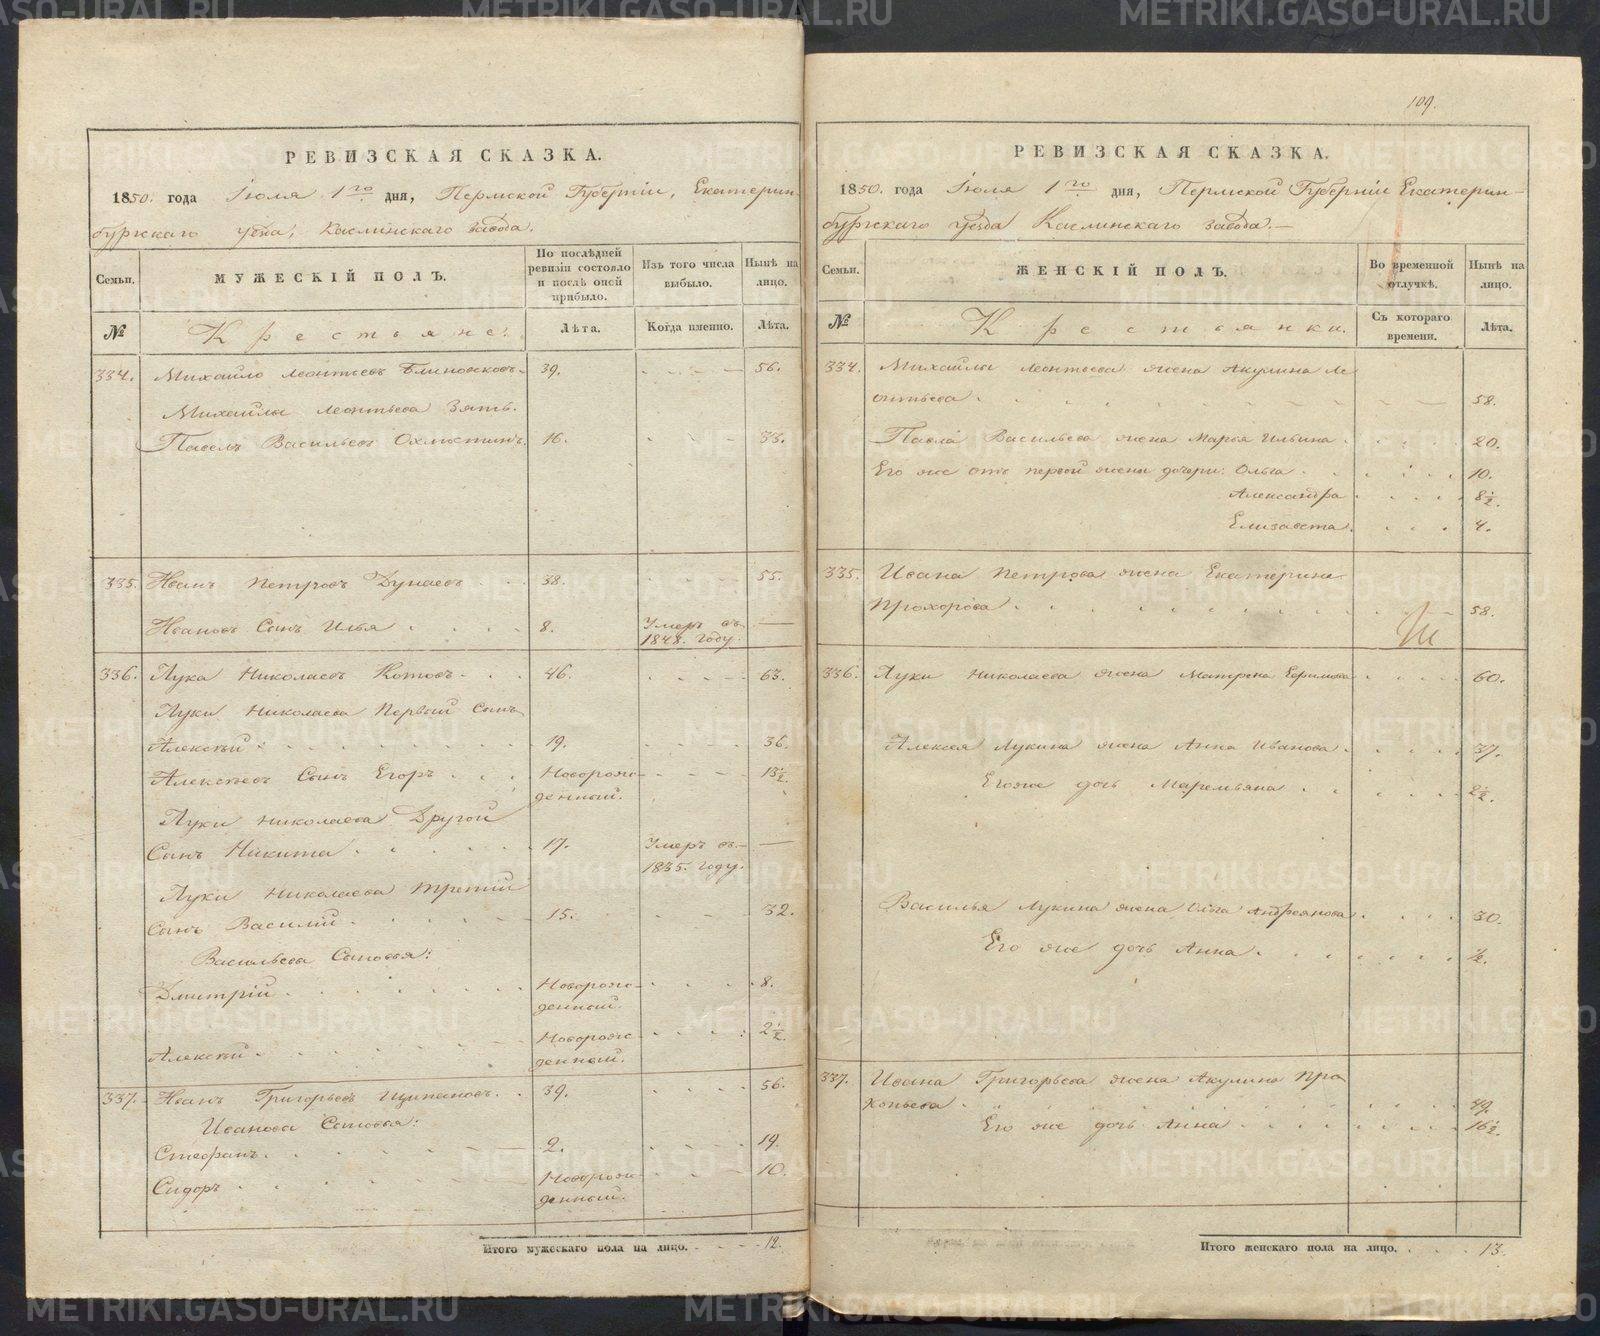 РЕВИЗСКАЯ СКАЗКА.
1850. года Іюля 1го дня, Пермской Губерніи, Екатерин-
бургскаго уѣзда, Каслинскаго завода.
Семьи.
МУЖЕСКІЙ ПОЛЪ.
По послѣдней ревизіи состояло и послѣ оной прибыло.
Изъ того числа выбыло.
Нынѣ на лицо.
№
Крестьяне:
Лѣта.
Когда именно.
Лѣта.
334. Михайло Леонтьевъ Блиновсковъ 39. 56.
Михайлы Леонтьева Зять.
Павелъ Васильевъ Охлюстинъ. 16. 33.
335. Иванъ Петровъ Дунаевъ 38. 55.
Ивановъ Сынъ Илья 8. Умеръ въ
1848. году.
336. Лука Николаевъ Котовъ 46. 63.
Луки Николаева Первый Сынъ
Алексѣй 19. 36.
Алексѣевъ Сынъ Егоръ Новорож- 13½.
денный.
Луки Николаева Другой
Сынъ Никита 17. Умеръ въ
1835. году.
Луки Николаева Третій
Сынъ Василій 15. 32.
Васильева Сыновья:
Дмитрій Новорож- 8.
денный.
Алексѣй Новорож- 2½.
денный.
337. Иванъ Григорьевъ Щипановъ 39. 56.
Иванова Сыновья:
Стефанъ 2. 19.
Сидоръ Новорож- 10.
денный.
Итого мужескаго пола на лицо. 12.
109.
РЕВИЗСКАЯ СКАЗКА.
1850. года Іюля 1го дня, Пермской Губерніи Екатерин-
бургскаго уѣзда Каслинскаго завода.
Семьи.
ЖЕНСКІЙ ПОЛЪ.
Во временной отлучкѣ.
Нынѣ на лицо.
№
Крестьянки.
Съ котораго времени.
Лѣта.
334. Михайлы Леонтьева жена Акулина Ле
онтьева 58.
Павла Васильева жена Марья Ильина 20.
Его же отъ первой жены дочери: Ольга 10.
Александра 8½
Елизавета 4.
335. Ивана Петрова жена Екатерина
Прохорова 58.
336. Луки Николаева жена Матрена Ефимова 60.
Алексея Лукина жена Анна Иванова 37.
Его же дочь Маремьяна 2½.
Василья Лукина жена Ольга Андреянова 30.
Его же дочь Анна ½.
337. Ивана Григорьева жена Акулина Про
копьева 49.
Его же дочь Анна 16½.
Итого женскаго пола на лицо. 13.
METRIKI.GASO-URAL.RU